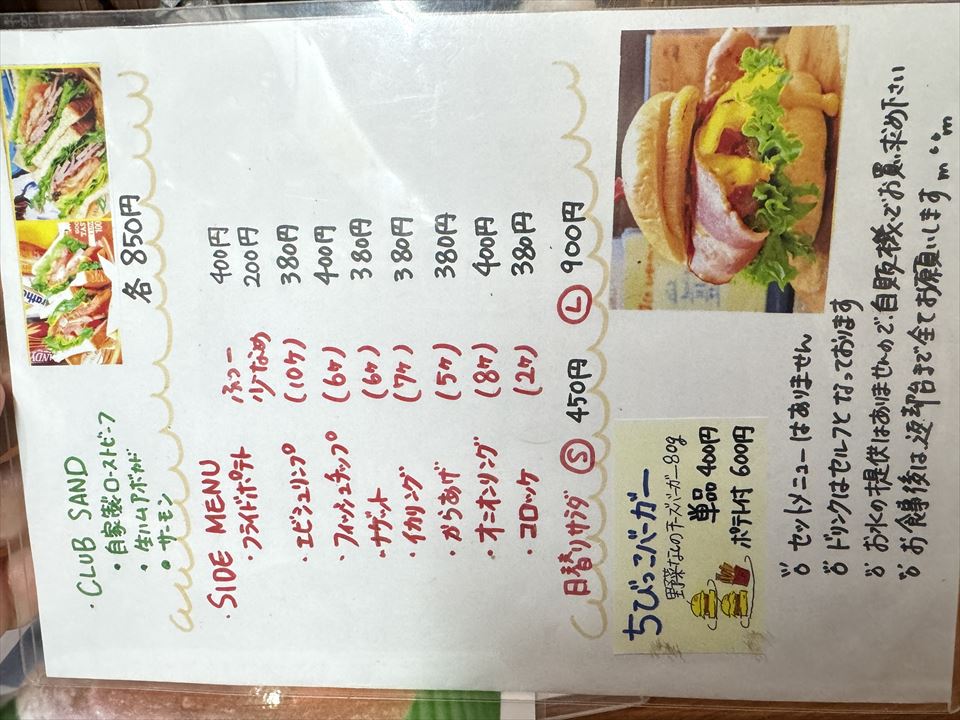 ・CLUB SAND
・自家製ローストビーフ
・生ハムアボカド
・サーモン
各 850円
・SIDE MENU
・フライドポテト ふつー 400円
少なめ 200円
・エビシュリンプ (10ヶ) 380円
・フィッシュチップ (6ヶ) 400円
・ナゲット (6ヶ) 380円
・イカリング (7ヶ) 380円
・からあげ (5ヶ) 380円
・オニオンリング (8ヶ) 400円
・コロッケ (2ヶ) 380円
日替りサラダ Ⓢ 450円 Ⓛ 900円
ちびっこバーガー
野菜なしのチーズバーガー80g
単品 400円
ポテト付 600円
セットメニューはありません
ドリンクはセルフとなっております
お水の提供はありませんので、自販機様でお買い求め下さい
お食事後は、返却台まで全てお願いします m(..)m